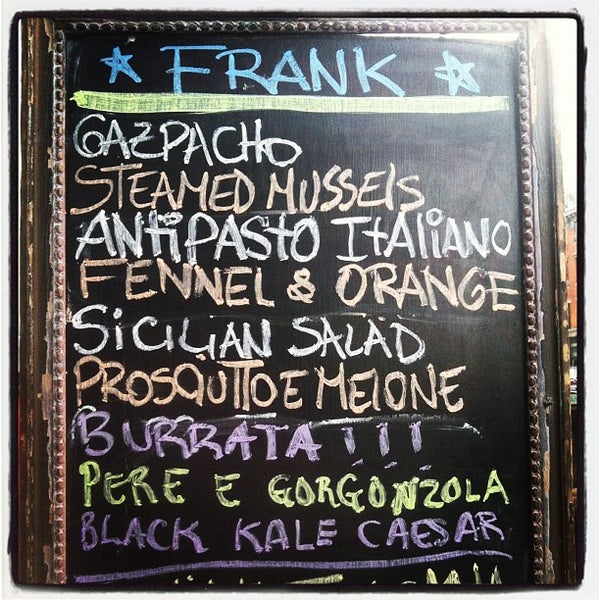 FRANK
GAZPACHO
STEAMED MUSSELS
ANTIPASTO ITALIANO
FENNEL & ORANGE
SICILIAN SALAD
PROSQUTTO E MELONE
BURRATA !!!
PERE E GORGONZOLA
BLACK KALE CAESAR